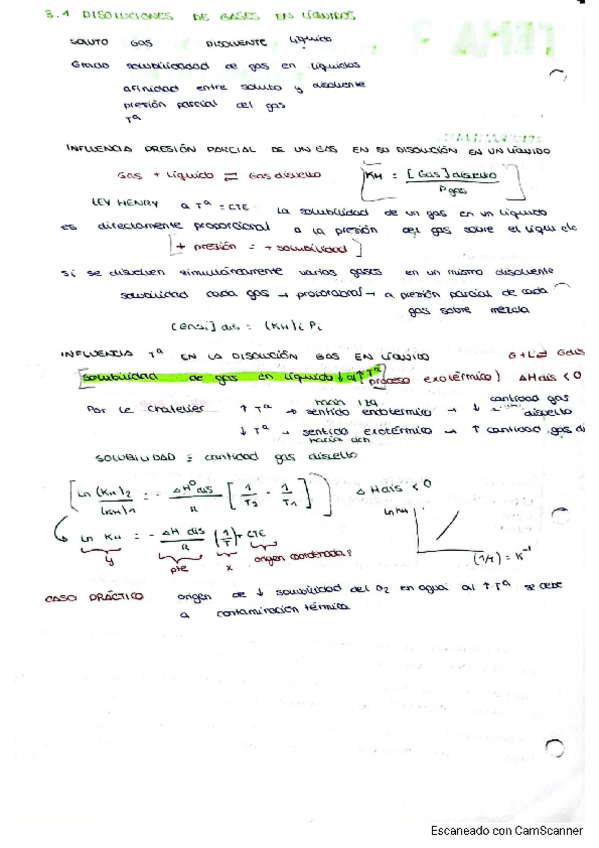 3.1 DISOLUCIONES DE GASES EN LÍQUIDOS
SOLUTO GAS DISOLVENTE Líquido
Grado solubilidadad de gas en líquidos
afinidad entre soluto y disolvente
presión parcial del gas
Tª
INFLUENCIA PRESIÓN PARCIAL DE UN GAS EN SU DISOLUCIÓN EN UN LÍQUIDO
Gas + Líquido ⇌ Gas disuelto [KH = [Gas] disuelto / Pgas]
LEY HENRY a Tª = CTE la solubilidad de un gas en un líquido
es directamente proporcional a la presión del gas sobre el líqui do
[+ presión = + solubilidad]
Si se disuelven simultáneamente varios gases en un mismo disolvente
solubilidad cada gas → proporcional → a presión parcial de cada
gas sobre mezcla
[Gasi] dis = (KH)i Pi
INFLUENCIA Tª EN LA DISOLUCIÓN GAS EN LÍQUIDO G+L⇌ Gdis
[solubilidad de gas en líquido ↓ al ↑ Tª (proceso exotérmico) ΔHdis < 0
Por Le Chatelier ↑ Tª → sentido endotermico → ↓ cantidad gas disuelto
↓ Tª → sentido exotérmico → ↑ cantidad gas di
hacia dch
SOLUBILIDAD = cantidad gas disuelto
[Ln (KH)2 / (KH)1 = - ΔH⁰dis / R [1/T2 - 1/T1]] ΔHdis < 0
Ln KH = - ΔH dis / R (1/T) + CTE
y pte x origen coordenadas
Ln KH
(1/T) = K⁻¹
CASO PRÁCTICO origen de ↓ solubilidad del O2 en agua al ↑ Tª se debe
a contaminación térmica
Escaneado con CamScanner